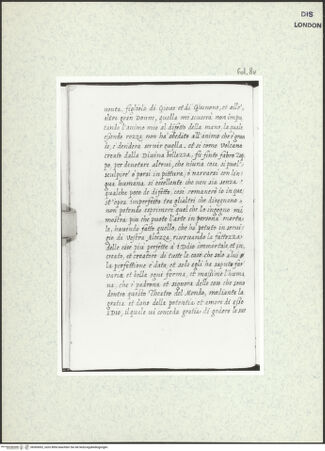 DIS
LONDON
Fol. 8v
nouta, figliola di Gioue et di Giunone, et all'
altre gran Donne, quella mi scuserà non impu
tando l'animo mio al difetto della mano, la quale
essendo rozza non ha obedito all'animo che è gran
de, e desidera seruir quella. et si come Volcano
creato dalla Diuina bellezza, fù finto fabro Zop
po, per denotare altrui, che niuna cosa si puol'
sculpire ò porsi in pittura, ò narrarsi con lin
gua humana, sì eccellente che non sia senza
qualche poco di difetto, così rimanerò io in que
st'opra imperfetto tra gl'altri che disegnano,
non potendo esprimere quel che lo ingegno mi
mostra più che puote l'arte in persona morta
le, hauendo fatto quello, che ha potuto in serui
tio di Vostra Altezza, riseruando la fattezza
delle cose più perfette à Iddio immortale et in
creato, et creatore di tutte le cose che solo à lui
la perfettione è data, et solo egli ha saputo far
varia et bella ogni forma, et massime l'huma
na, che è padrona et signora delle cose che sono
dentro questo Theatro del Mondo, mediante la
gratia et dono della potentia et amore di esso
Idio, il quale vi conceda gratia di godere le sue